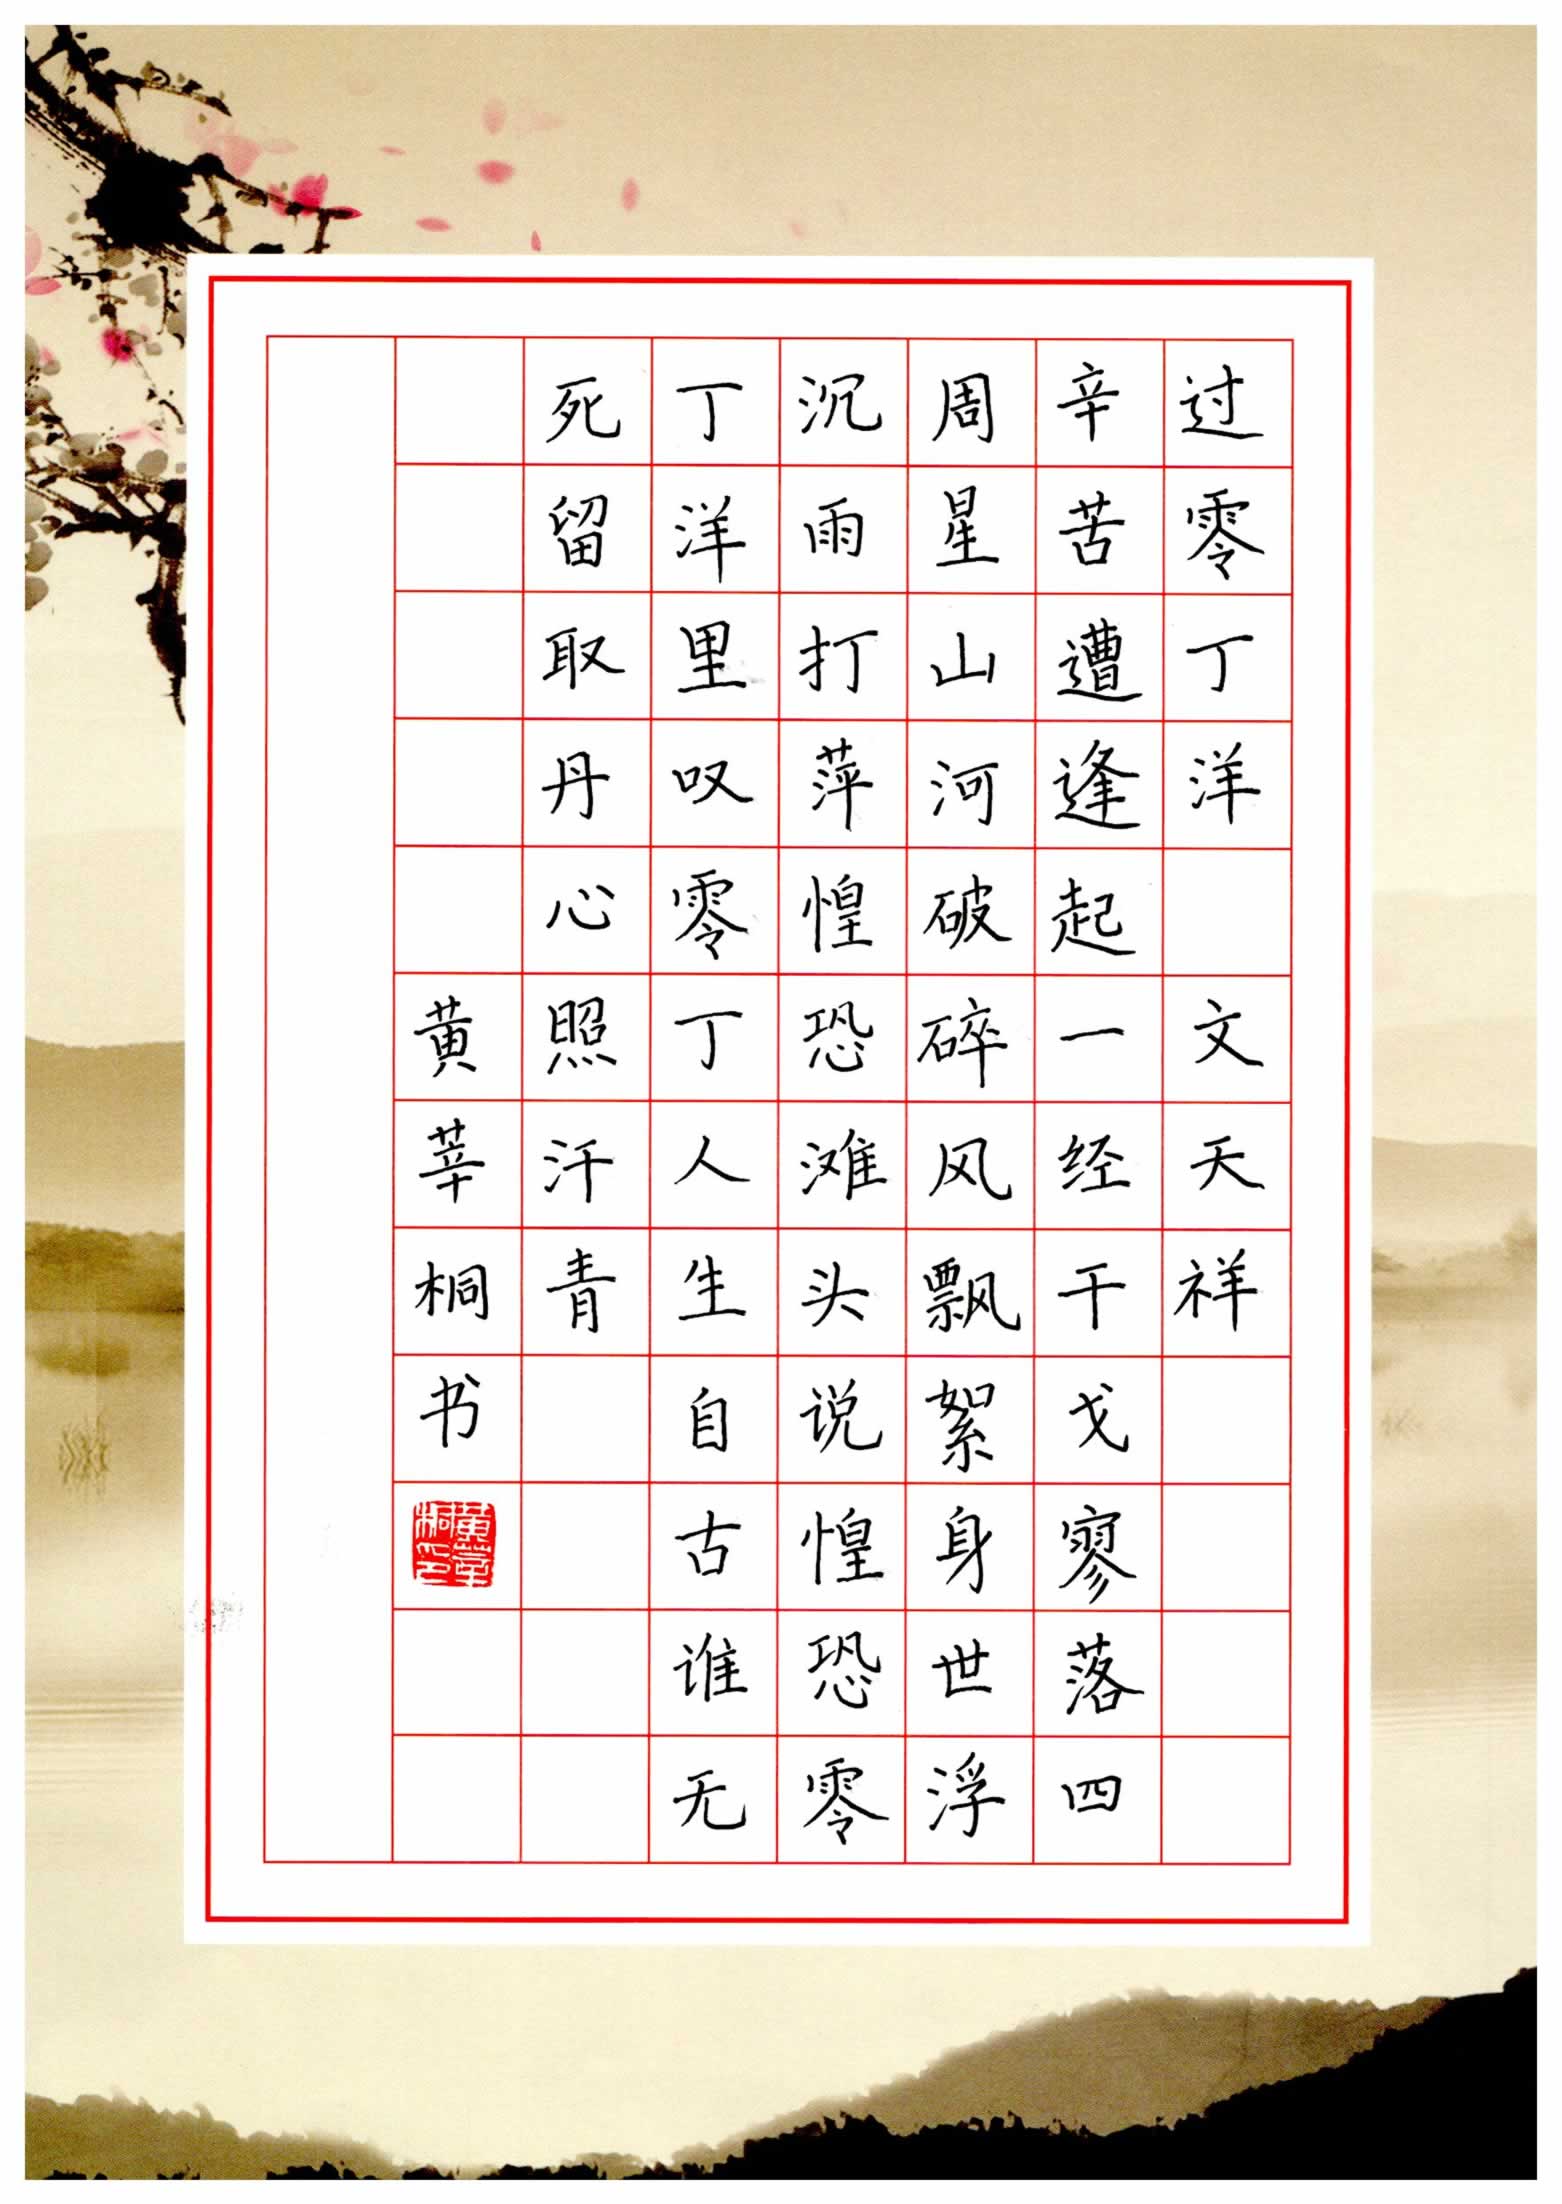 过零丁洋 文天祥
辛苦遭逢起一经干戈寥落四
周星山河破碎风飘絮身世浮
沉雨打萍惶恐滩头说惶恐零
丁洋里叹零丁人生自古谁无
死留取丹心照汗青
黄莘桐书
黄莘桐印